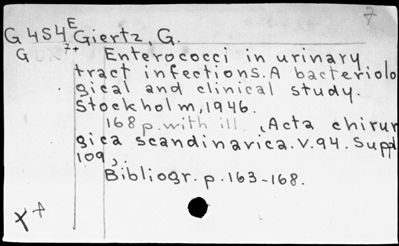 7
G 4S4 E Giertz, G.
G 7+ Enterococci in urinary
tract infections. A bacteriolo
gical and clinical study.
Stockholm, 1946.
168 p. with ill. (Acta chirur
gica scandinavica. V. 94. Suppl
109)
Bibliogr. p. 163-168.
X +